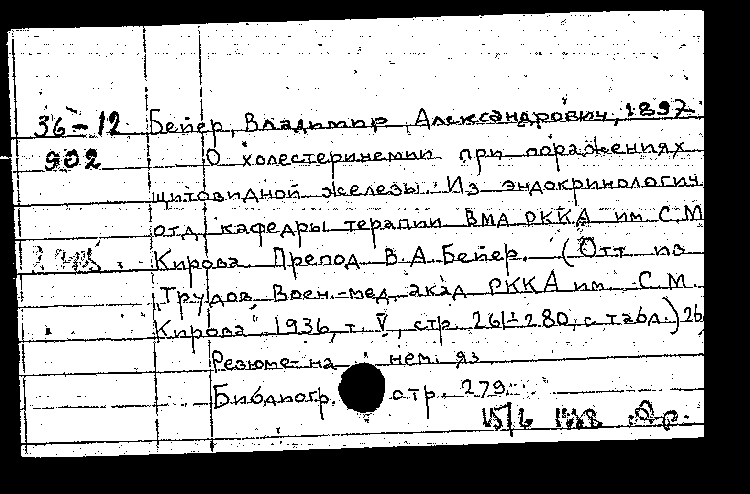 36-12 Бейер, Владимир Александрович, 1897-
902 О холестеринемии при поражениях
щитовидной железы. Из эндокринологич.
отд. кафедры терапии ВМА РККА им. С.М.
Кирова. Препод. В.А. Бейер. (Отт. из
"Трудов Воен.-мед. акад. РККА им. С.М.
Кирова" 1936, т. V, стр. 261-280, с табл.) 26
Резюме на нем. яз.
Библиогр. стр. 279.
15/6